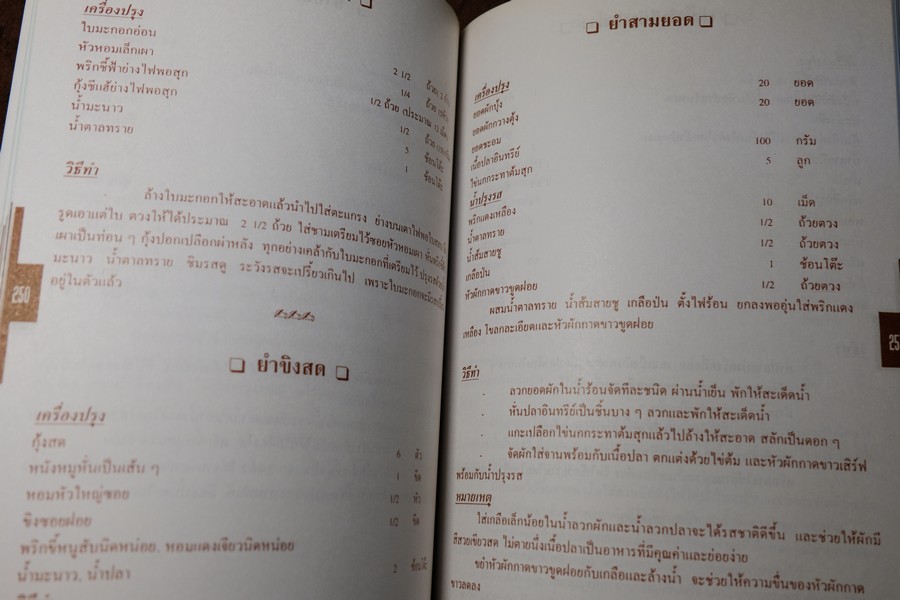 เครื่องปรุง
ใบมะกอกอ่อน
หัวหอมเล็กเผา 2 1/2 ถ้วย
พริกชี้ฟ้าย่างไฟพอสุก 1/4 ถ้วย
กุ้งชีแฮ้ย่างไฟพอสุก 1/2 ถ้วย (ประมาณ 13 เม็ด)
น้ำมะนาว 5 ช้อนโต๊ะ
น้ำตาลทราย 1 ช้อนโต๊ะ
วิธีทำ
ล้างใบมะกอกให้สะอาดแล้วนำไปใส่ตะแกรง ย่างบนเตาไฟพอใบสลบ
รูดเอาแต่ใบ ตวงให้ได้ประมาณ 2 1/2 ถ้วย ใส่ชามเตรียมไว้ซอยหัวหอมเผา
เผาเป็นท่อน ๆ กุ้งปอกเปลือกผ่าหลัง ทุกอย่างเคล้ากับใบมะกอกที่เตรียมไว้ ปรุงรสด้วยน้ำ
มะนาว น้ำตาลทราย ชิมรสดู ระวังรสจะเปรี้ยวเกินไป เพราะใบมะกอกจะมีรสเปรี้ยว
อยู่ในตัวแล้ว
250
ยำขิงสด
เครื่องปรุง
กุ้งสด 6 ตัว
หนังหมูหั่นเป็นเส้น ๆ 1 ขีด
หอมหัวใหญ่ซอย 1/2 หัว
ขิงซอยฝอย 1/2 ขีด
พริกขี้หนูสับนิดหน่อย, หอมแดงเจียวนิดหน่อย
น้ำมะนาว, น้ำปลา 2 ช้อนโต๊ะ
วิธีทำ
ยำสามยอด
เครื่องปรุง
ยอดผักบุ้ง 20 ยอด
ยอดผักกวางตุ้ง 20 ยอด
ยอดชะอม
เนื้อปลาอินทรีย์ 100 กรัม
ไข่นกกระทาต้มสุก 5 ลูก
น้ำปรุงรส
พริกแดงเหลือง 10 เม็ด
น้ำตาลทราย 1/2 ถ้วยตวง
น้ำส้มสายชู 1/2 ถ้วยตวง
เกลือป่น 1 ช้อนโต๊ะ
หัวผักกาดขาวขูดฝอย 1/2 ถ้วยตวง
ผสมน้ำตาลทราย น้ำส้มสายชู เกลือป่น ตั้งไฟร้อน ยกลงพออุ่นใส่พริกแดง
เหลือง โขลกละเอียดและหัวผักกาดขาวขูดฝอย
25
วิธีทำ
- ลวกยอดผักในน้ำร้อนจัดทีละชนิด ผ่านน้ำเย็น พักให้สะเด็ดน้ำ
- หั่นปลาอินทรีย์เป็นชิ้นบาง ๆ ลวกและพักให้สะเด็ดน้ำ
- แกะเปลือกไข่นกกระทาต้มสุกแล้วไปล้างให้สะอาด สลักเป็นดอก ๆ
- จัดผักใส่จานพร้อมกับเนื้อปลา ตกแต่งด้วยไข่ต้ม และหัวผักกาดขาวเสิร์ฟ
พร้อมกับน้ำปรุงรส
หมายเหตุ
ใส่เกลือเล็กน้อยในน้ำลวกผักและน้ำลวกปลาจะได้รสชาติดีขึ้น และช่วยให้ผักมี
สีสวยเขียวสด ไม่ตายนึ่งเนื้อปลาเป็นอาหารที่มีคุณค่าและย่อยง่าย
ขยำหัวผักกาดขาวขูดฝอยกับเกลือและล้างน้ำ จะช่วยให้ความขื่นของหัวผักกาด
ขาวลดลง